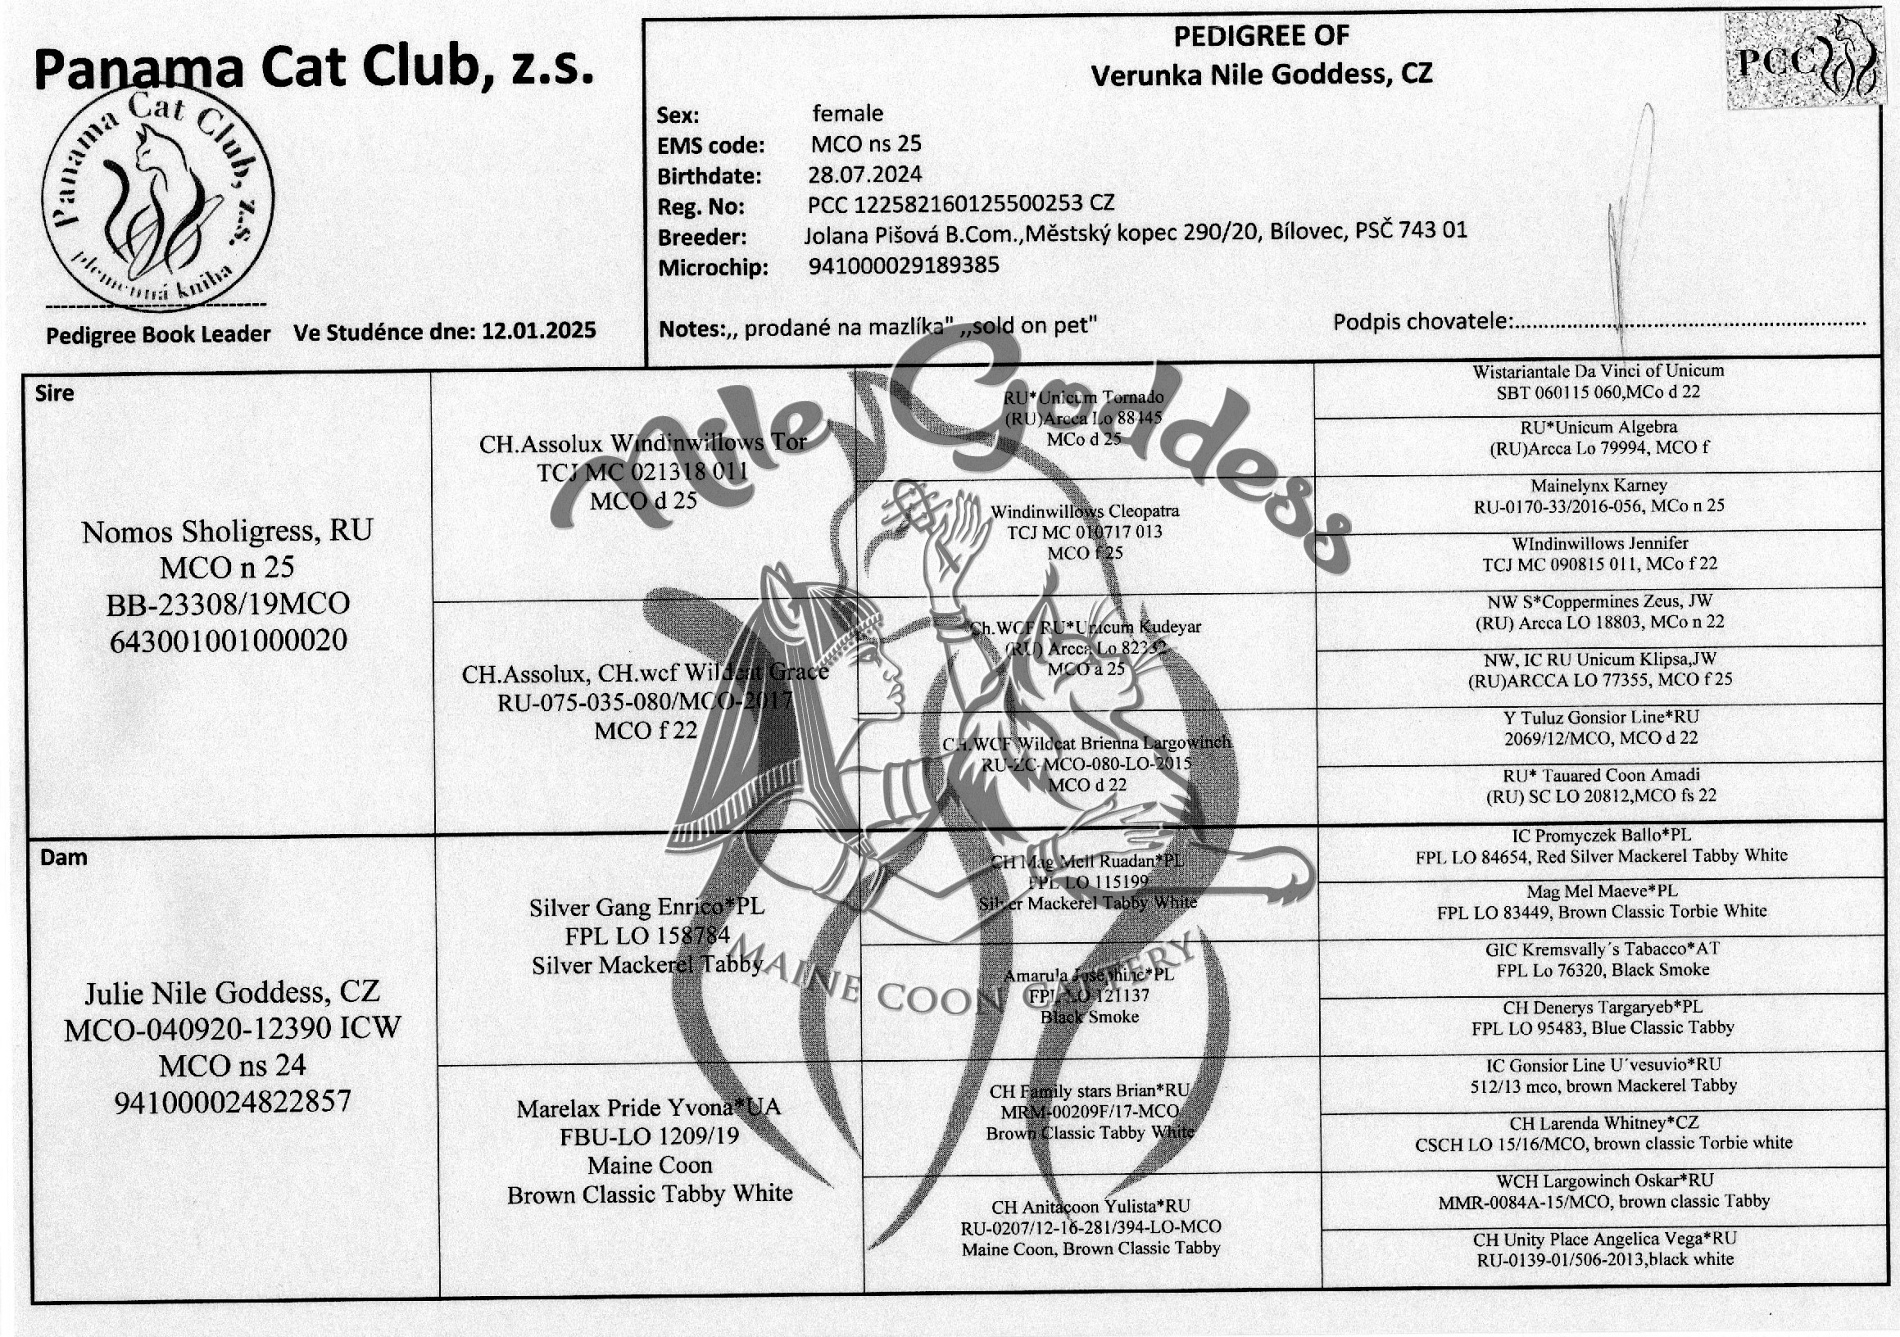 Panama Cat Club, z.s.
Panama Cat Club, z.s.
plemenná kniha
Pedigree Book Leader Ve Studénce dne: 12.01.2025
PEDIGREE OF
Verunka Nile Goddess, CZ
PCC
Sex: female
EMS code: MCO ns 25
Birthdate: 28.07.2024
Reg. No: PCC 122582160125500253 CZ
Breeder: Jolana Pišová B.Com.,Městský kopec 290/20, Bílovec, PSČ 743 01
Microchip: 941000029189385
Notes:,, prodané na mazlíka" ,,sold on pet" Podpis chovatele:
Nile Goddess
MAINE COON CATTERY
Sire
Nomos Sholigress, RU
MCO n 25
BB-23308/19MCO
643001001000020
CH.Assolux Windinwillows Tor
TCJ MC 021318 011
MCO d 25
CH.Assolux, CH.wcf Wildcat Grace
RU-075-035-080/MCO-2017
MCO f 22
RU*Unicum Tornado
(RU)Arcca Lo 88445
MCo d 25
Windinwillows Cleopatra
TCJ MC 010717 013
MCO f 25
Ch.WCF RU*Unicum Kudeyar
(RU) Arcca Lo 82332
MCO a 25
CH.WCF Wildcat Brienna Largowinch
RU-ZC-MCO-080-LO-2015
MCO d 22
Wistariantale Da Vinci of Unicum
SBT 060115 060,MCo d 22
RU*Unicum Algebra
(RU)Arcca Lo 79994, MCO f
Mainelynx Karney
RU-0170-33/2016-056, MCo n 25
WIndinwillows Jennifer
TCJ MC 090815 011, MCo f 22
NW S*Coppermines Zeus, JW
(RU) Arcca LO 18803, MCo n 22
NW, IC RU Unicum Klipsa,JW
(RU)ARCCA LO 77355, MCO f 25
Y Tuluz Gonsior Line*RU
2069/12/MCO, MCO d 22
RU* Tauared Coon Amadi
(RU) SC LO 20812,MCO fs 22
Dam
Julie Nile Goddess, CZ
MCO-040920-12390 ICW
MCO ns 24
941000024822857
Silver Gang Enrico*PL
FPL LO 158784
Silver Mackerel Tabby
Marelax Pride Yvona*UA
FBU-LO 1209/19
Maine Coon
Brown Classic Tabby White
CH Mag Mell Ruadan*PL
FPL LO 115199
Silver Mackerel Tabby White
Amarula Josephine*PL
FPL LO 121137
Black Smoke
CH Family stars Brian*RU
MRM-00209F/17-MCO
Brown Classic Tabby White
CH Anitacoon Yulista*RU
RU-0207/12-16-281/394-LO-MCO
Maine Coon, Brown Classic Tabby
IC Promyczek Ballo*PL
FPL LO 84654, Red Silver Mackerel Tabby White
Mag Mel Maeve*PL
FPL LO 83449, Brown Classic Torbie White
GIC Kremsvally´s Tabacco*AT
FPL Lo 76320, Black Smoke
CH Denerys Targaryeb*PL
FPL LO 95483, Blue Classic Tabby
IC Gonsior Line U´vesuvio*RU
512/13 mco, brown Mackerel Tabby
CH Larenda Whitney*CZ
CSCH LO 15/16/MCO, brown classic Torbie white
WCH Largowinch Oskar*RU
MMR-0084A-15/MCO, brown classic Tabby
CH Unity Place Angelica Vega*RU
RU-0139-01/506-2013,black white